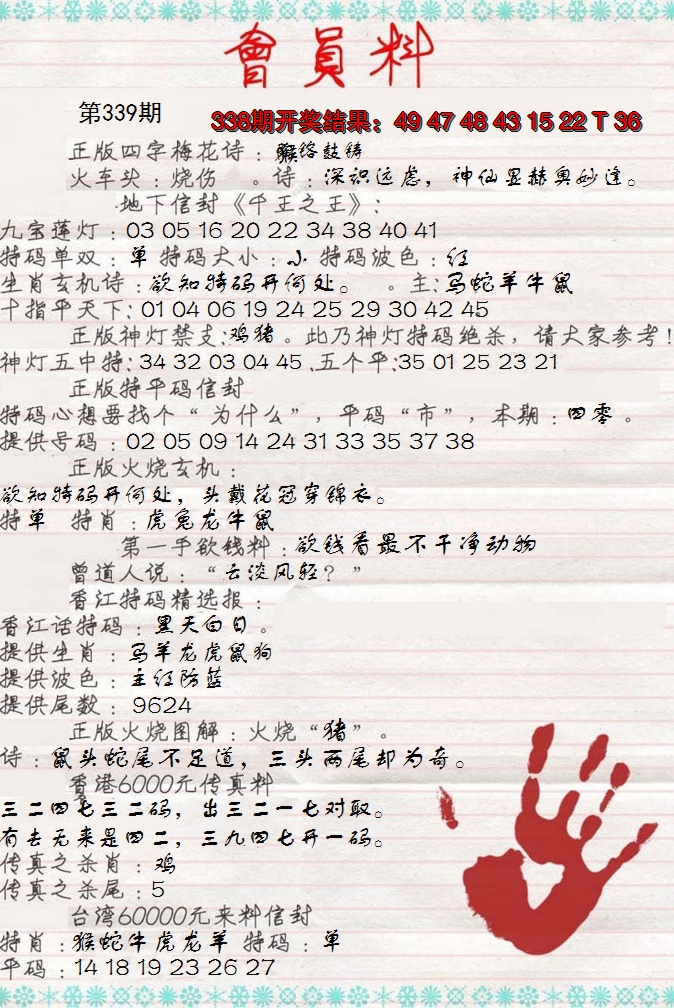 會員料
第339期
338期开奖结果：49 47 48 43 15 22 T 36
正版四字梅花诗：猴镕鼓铸
火车头：烧伤 。诗：深识远虑，神仙显赫奥妙逢。
地下信封《千王之王》：
九宝莲灯：03 05 16 20 22 34 38 40 41
特码单双：单 特码大小：小 特码波色：红
生肖玄机诗：欲知特码开何处。 。主：马蛇羊牛鼠
十指平天下：01 04 06 19 24 25 29 30 42 45
正版神灯禁支：鸡猪。此乃神灯特码绝杀，请大家参考！
神灯五中特：34 32 03 04 45 .五个平：35 01 25 23 21
正版特平码信封
特码心想要找个“为什么”，平码“市”，本期：四零。
提供号码：02 05 09 14 24 31 33 35 37 38
正版火烧玄机：
欲知特码开何处，头戴花冠穿锦衣。
特单 特肖：虎兔龙牛鼠
第一手欲钱料：欲钱看最不干净动物
曾道人说：“云淡风轻？”
香江特码精选报：
香江话特码：黑天白日。
提供生肖：马羊龙虎鼠狗
提供波色：主红防蓝
提供尾数：9624
正版火烧图解：火烧“猪”。
诗：鼠头蛇尾不足道，三头两尾却为奇。
香港6000元传真料
三二四七三二码，出三二一七对取。
有去无来是四二，三九四七开一码。
传真之杀肖：鸡
传真之杀尾：5
台湾60000元来料信封
特肖：猴蛇牛虎龙羊 特码：单
平码：14 18 19 23 26 27